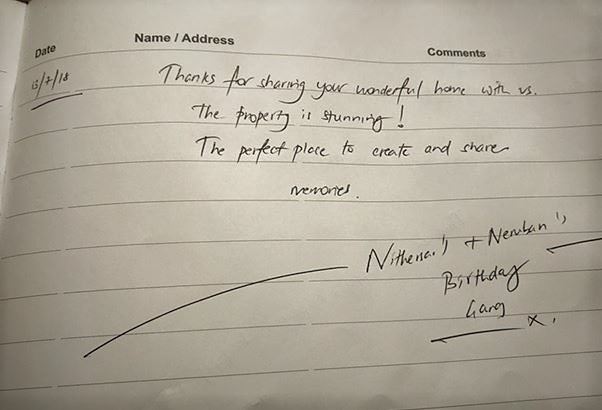 Date Name / Address Comments
13/7/18 Thanks for sharing your wonderful home with us.
The property is stunning!
The perfect place to create and share
memories.
+ Neruban's
Birthday
Gang
x.